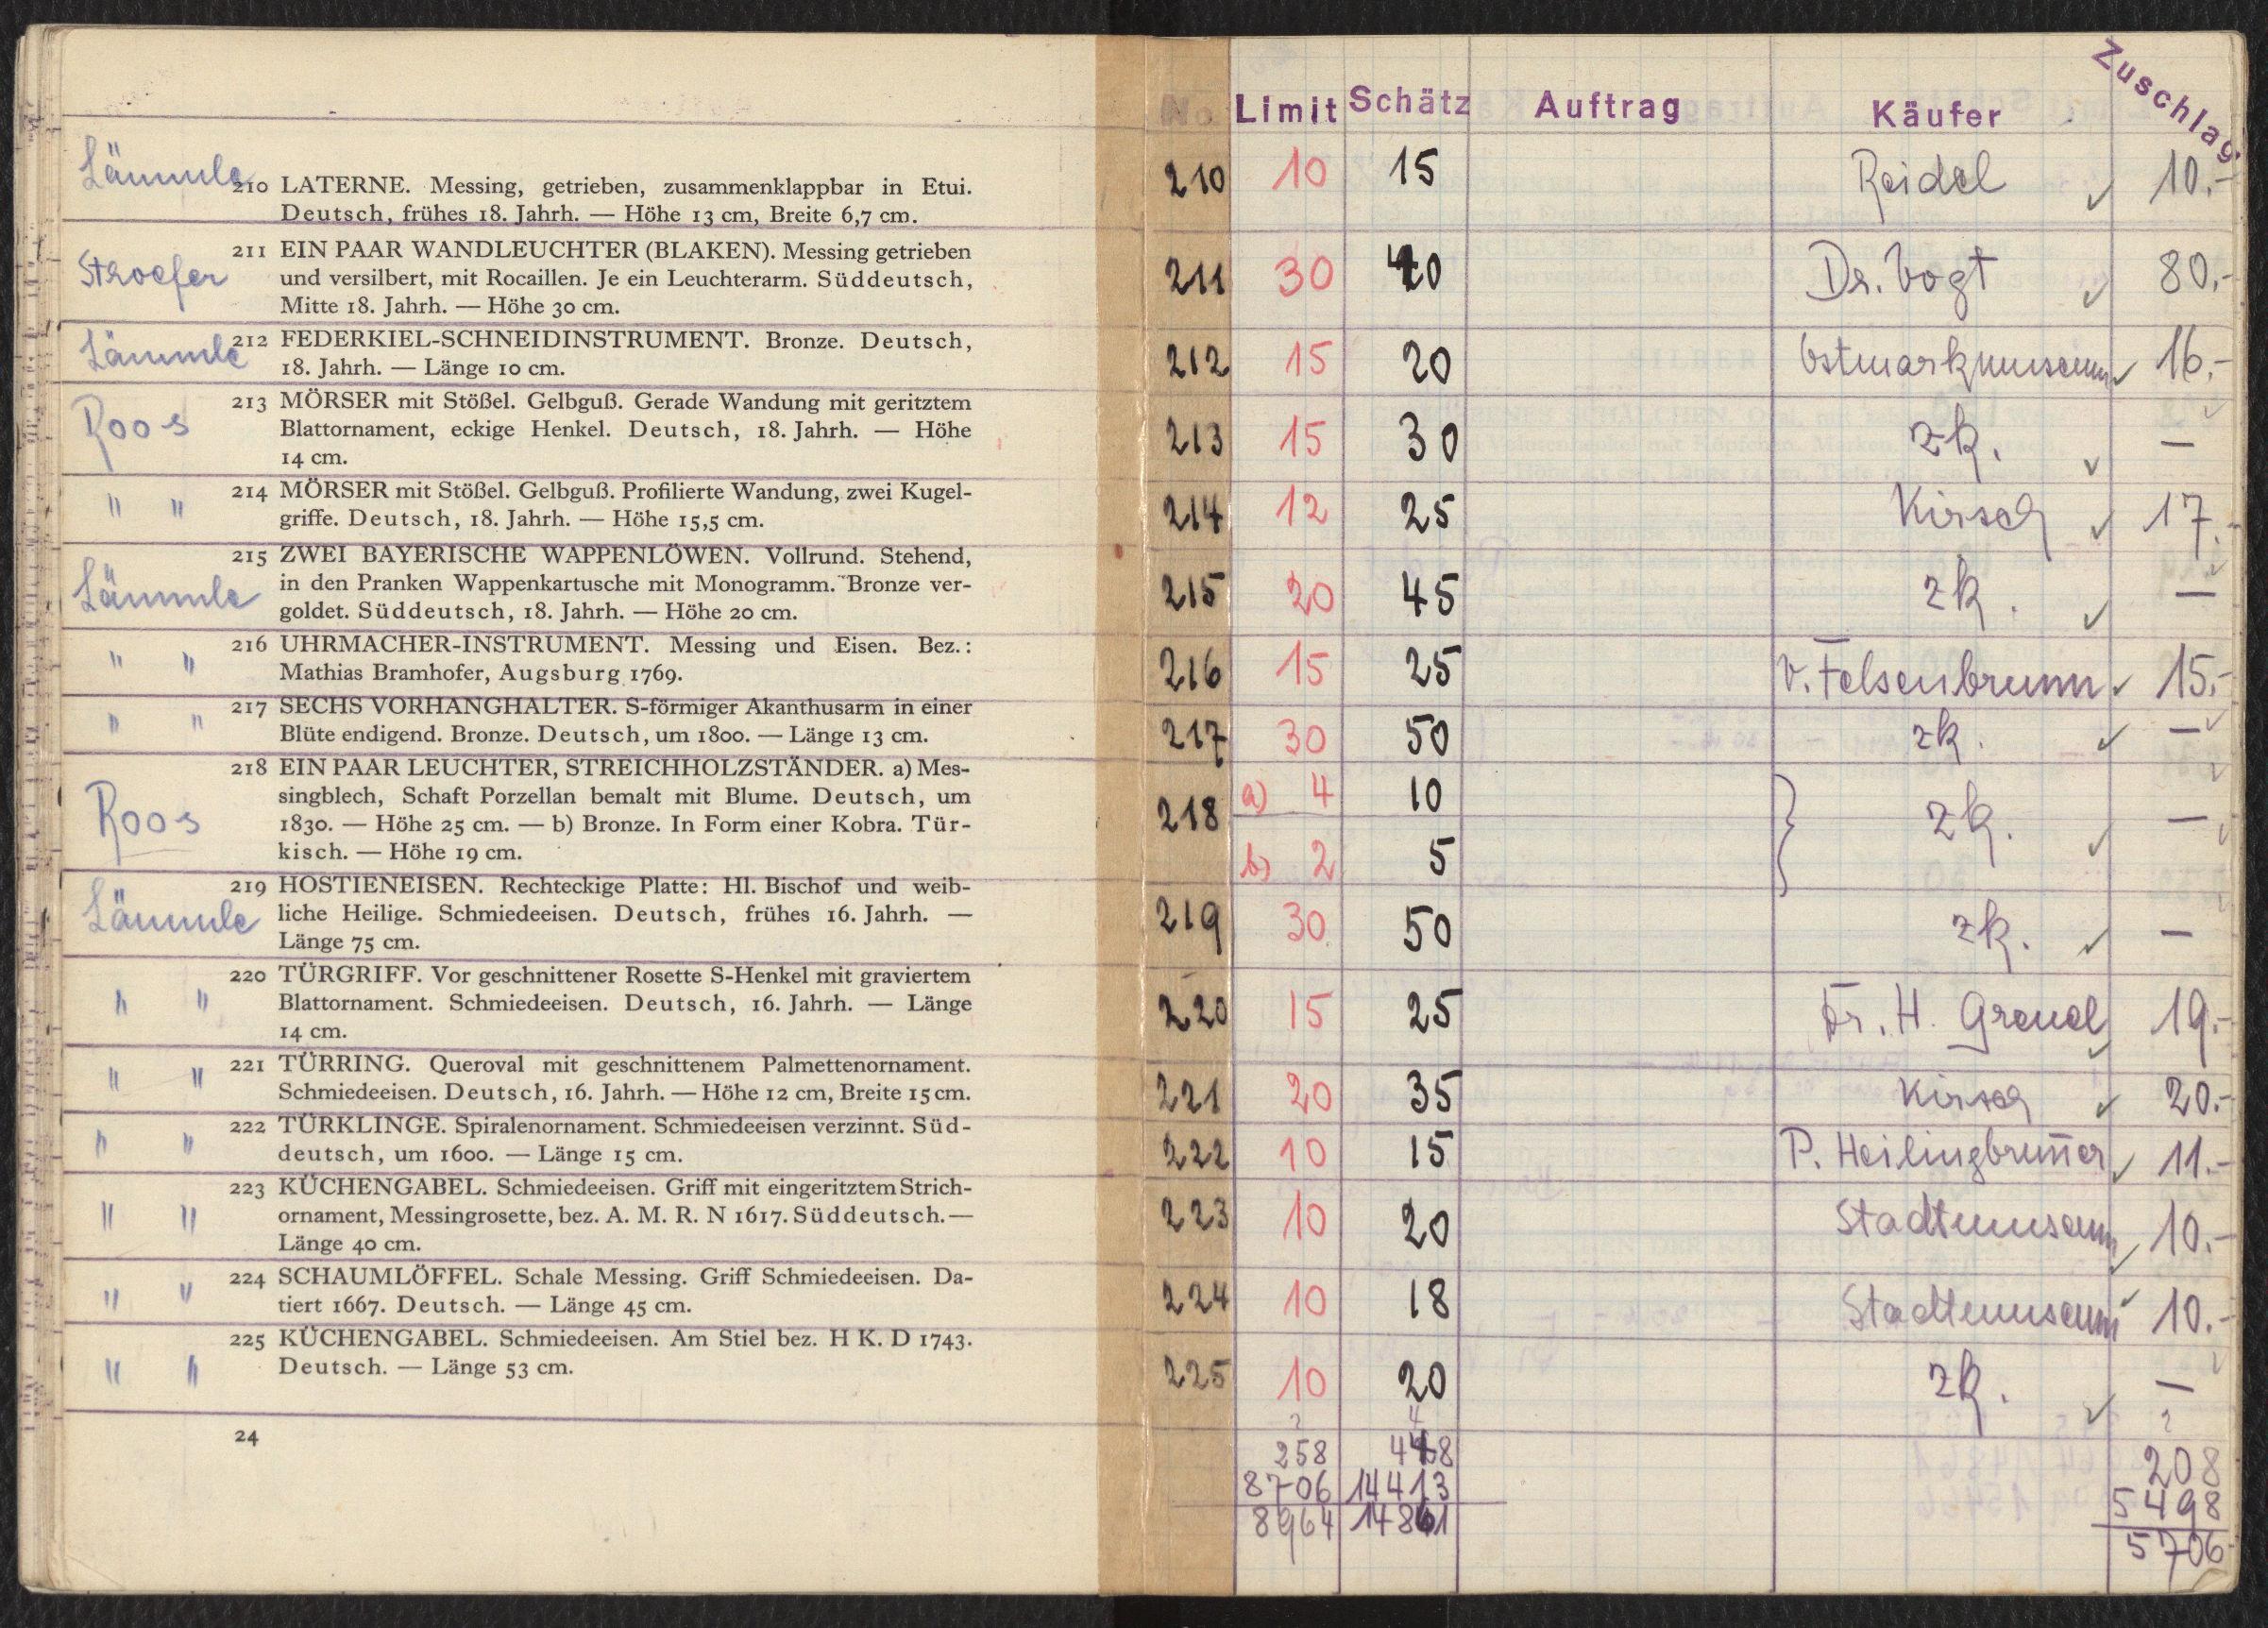 Lämmle
210 LATERNE. Messing, getrieben, zusammenklappbar in Etui.
Deutsch, frühes 18. Jahrh. — Höhe 13 cm, Breite 6,7 cm.
Stroefer
211 EIN PAAR WANDLEUCHTER (BLAKEN). Messing getrieben
und versilbert, mit Rocaillen. Je ein Leuchterarm. Süddeutsch,
Mitte 18. Jahrh. — Höhe 30 cm.
Lämmle
212 FEDERKIEL-SCHNEIDINSTRUMENT. Bronze. Deutsch,
18. Jahrh. — Länge 10 cm.
Roos
213 MÖRSER mit Stößel. Gelbguß. Gerade Wandung mit geritztem
Blattornament, eckige Henkel. Deutsch, 18. Jahrh. — Höhe
14 cm.
" "
214 MÖRSER mit Stößel. Gelbguß. Profilierte Wandung, zwei Kugel-
griffe. Deutsch, 18. Jahrh. — Höhe 15,5 cm.
Lämmle
215 ZWEI BAYERISCHE WAPPENLÖWEN. Vollrund. Stehend,
in den Pranken Wappenkartusche mit Monogramm. Bronze ver-
goldet. Süddeutsch, 18. Jahrh. — Höhe 20 cm.
" "
216 UHRMACHER-INSTRUMENT. Messing und Eisen. Bez.:
Mathias Bramhofer, Augsburg 1769.
" "
217 SECHS VORHANGHALTER. S-förmiger Akanthusarm in einer
Blüte endigend. Bronze. Deutsch, um 1800. — Länge 13 cm.
Roos
218 EIN PAAR LEUCHTER, STREICHHOLZSTÄNDER. a) Mes-
singblech, Schaft Porzellan bemalt mit Blume. Deutsch, um
1830. — Höhe 25 cm. — b) Bronze. In Form einer Kobra. Tür-
kisch. — Höhe 19 cm.
Lämmle
219 HOSTIENEISEN. Rechteckige Platte: Hl. Bischof und weib-
liche Heilige. Schmiedeeisen. Deutsch, frühes 16. Jahrh. —
Länge 75 cm.
" "
220 TÜRGRIFF. Vor geschnittener Rosette S-Henkel mit graviertem
Blattornament. Schmiedeeisen. Deutsch, 16. Jahrh. — Länge
14 cm.
" "
221 TÜRRING. Queroval mit geschnittenem Palmettenornament.
Schmiedeeisen. Deutsch, 16. Jahrh. — Höhe 12 cm, Breite 15 cm.
" "
222 TÜRKLINGE. Spiralenornament. Schmiedeeisen verzinnt. Süd-
deutsch, um 1600. — Länge 15 cm.
" "
223 KÜCHENGABEL. Schmiedeeisen. Griff mit eingeritztem Strich-
ornament, Messingrosette, bez. A. M. R. N 1617. Süddeutsch. —
Länge 40 cm.
" "
224 SCHAUMLÖFFEL. Schale Messing. Griff Schmiedeeisen. Da-
tiert 1667. Deutsch. — Länge 45 cm.
" "
225 KÜCHENGABEL. Schmiedeeisen. Am Stiel bez. H K. D 1743.
Deutsch. — Länge 53 cm.
24
No Limit Schätz Auftrag Käufer Zuschlag
210 10 15 Reidel ✓ 10.-
211 30 40 Dr. Vogt ✓ 80.-
212 15 20 Ostmarkmuseum ✓ 16.-
213 15 30 zk. ✓ —
214 12 25 Kirsch ✓ 17.-
215 20 45 zk. ✓ —
216 15 25 v. Felsenbrunn ✓ 15.-
217 30 50 zk. ✓ —
218 a) 4 10 } zk. ✓ —
b) 2 5
219 30 50 zk. ✓ —
220 15 25 H. Greuel ✓ 19.-
221 20 35 Kirsch ✓ 20.-
222 10 15 P. Heilingbrunner ✓ 11.-
223 10 20 Stadtmuseum ✓ 10.-
224 10 18 Stadtmuseum ✓ 10.-
225 10 20 zk. ✓ —
2 4 2
258 448 208
8706 14413 5498
8964 14861 5706